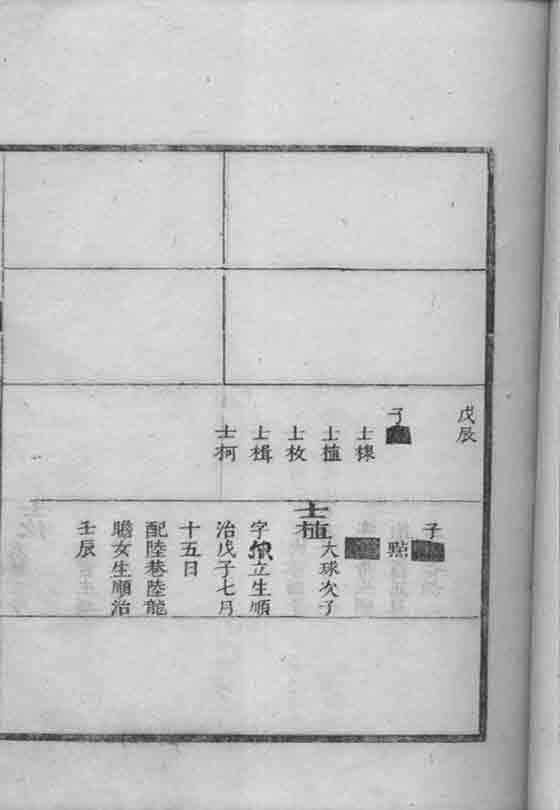 戊辰
子
士楳
士植
士枚
士楫
士柯
子
熈
士植
大球次子
字 立生順
治戊子七月
十五日
配陸巷陸龍
瞻女生順治
壬辰